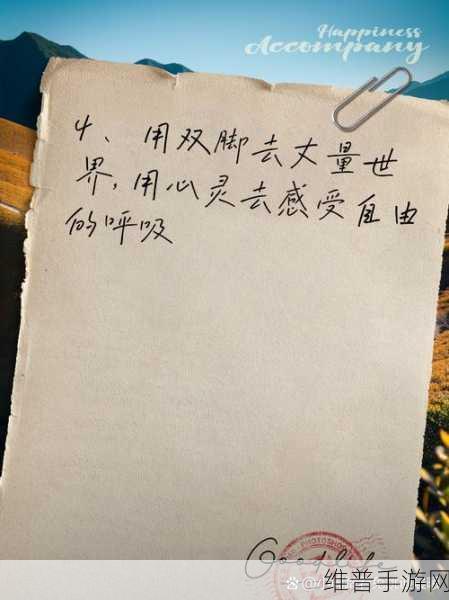 Happiness
Accompany
4、用双脚去丈量世
界，用心灵去感受自由
的呼吸
Good life
维普手游网